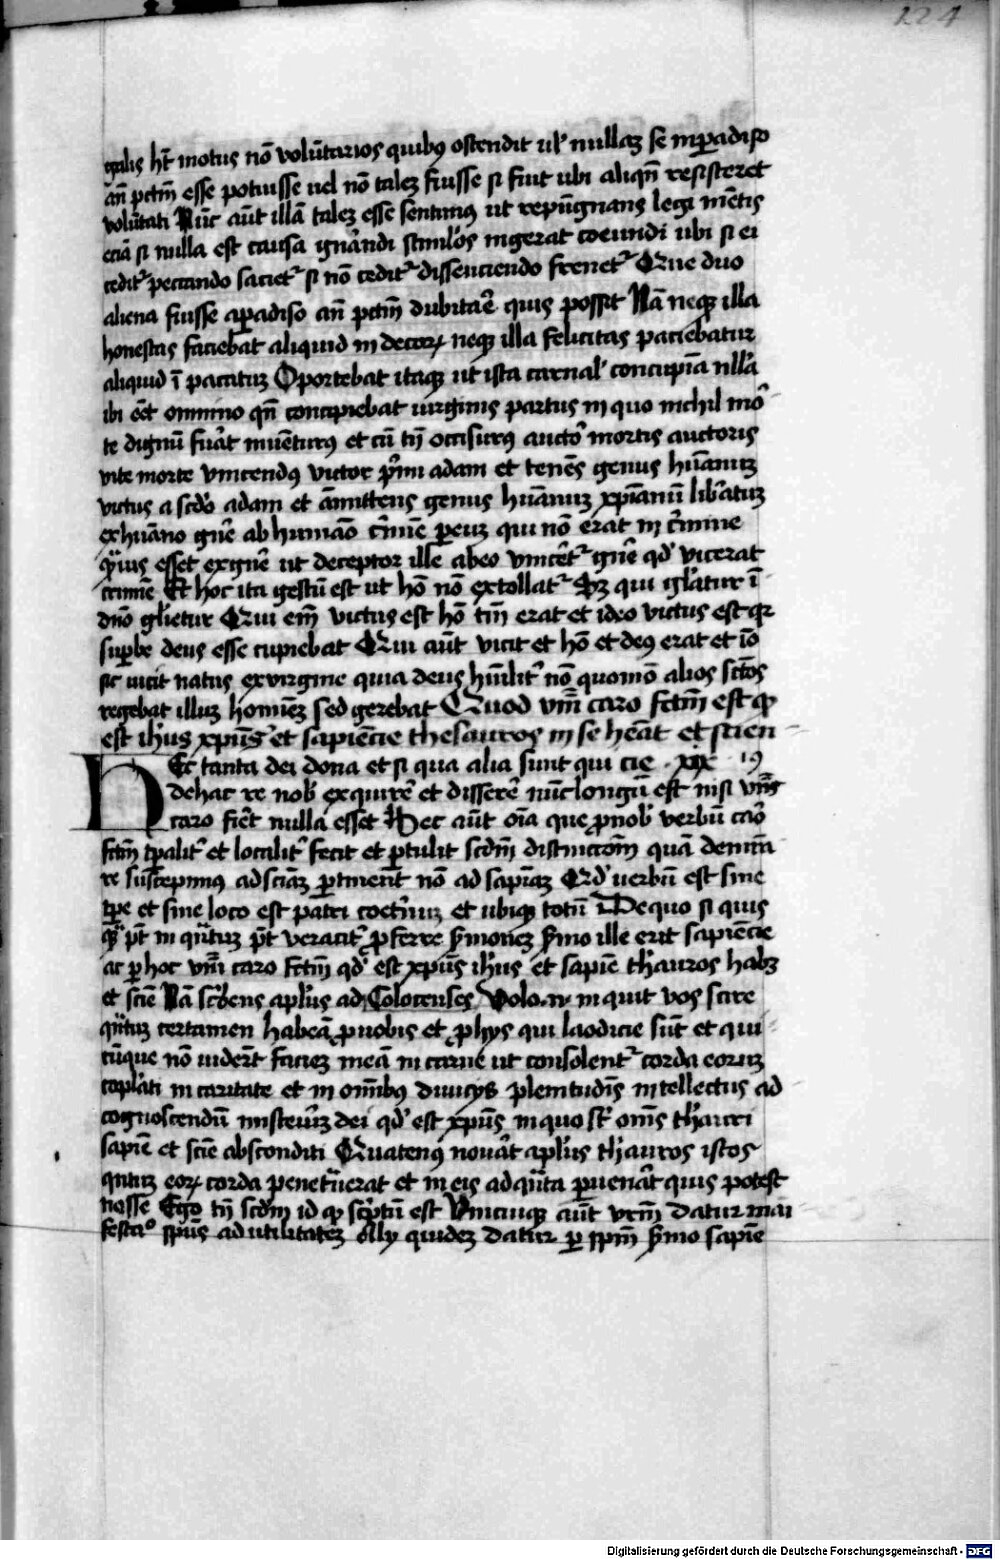 224
galis hn̄t motus nō volūtarios quibꝫ ostendit ul' nullaꝫ se in ꝑadiso
an̄ pctm̄ esse potuisse uel nō taleꝫ fuisse si fuit ubi aliqn̄ resisteret
volūtati Nūc aūt illā taleꝫ esse sentimꝰ ut repūgnans legi mētis
eciā si nulla est causa gn̄andi stimlos ingerat coeundi ubi si ei
cedit᷑ peccando saciet᷑ si nō cedit᷑ dissenciendo frenet᷑ Que duo
aliena fuisse a ꝑadiso an̄ pctm̄ dubitar̄e quis possit Nā neqꝫ illa
honestas faciebat aliquid in decorꝝ neqꝫ illa felicitas paciebatur
aliquid ī pacatuꝫ Oportebat itaqꝫ ut ista carnal' concupīa nll'a
ibi eēt omnino qn̄ concipiebat᷑ uirginis partus in quo nichil mor̄
te dignū fu'at inuēturꝰ et cū tn̄ occisurꝰ auctor mortis auctoris
vite morte vincendꝰ victor p'mi adam et tenēs genus hūanuꝫ
victus a scd'o adam et āmittens genus hūanuꝫ xp̄ianū lib'atuꝫ
ex hūano gn̄e ab humāo c'mīe ꝑ eūꝫ qui nō erat in c'mine
q̄uis esset ex gn̄e ut deceptor ille ab eo vīcēt᷑ gn̄e qd' vicerat
crimīe Et hoc ita gestū est ut hō nō extollat᷑ Sꝫ qui gl'atur ī
dn̄o gl'ietur Qui em̄ victus est hō tm̄ erat et ideo victus est qꝛ
suꝑbe deus esse cupiebat Qui aūt vicit et hō et deꝰ erat et iō
sic uicit natus ex virgine quia deus hūilit᷑ nō quomō alios sctōs
regebat illuꝫ homineꝫ sed gerebat Quod vm̄ caro fctm̄ est qd'
est ih'us xp̄us et sapiencie thesauros in se hēat et scien-
Ec tanta dei dona et si qua alia sunt qui cie . xix 19
de hac re nob' exquirē et disserē nūc longū est nisi vm̄
caro fiēt nulla esset Hec aūt oīa que ꝓ nob' verbū caro
fctm̄ tp̄alit᷑ et localit᷑ fecit et ꝑtulit scdm̄ distinctōm̄ quā demr̄a
re suscepimꝰ ad sciāꝫ ꝑtinent nō ad sapīaꝫ Qd' uerbū est sine
tp̄e et sine loco est patri coet'nuꝫ et ubiqꝫ totū De quo si quis
qꝫ pt̄ in qn̄tuꝫ pt̄ veracit᷑ ꝓferre s'moneꝫ s'mo ille erit sapiēcie
ac ꝑ hoc vm̄ caro fctm̄ qd' est xp̄us ih'us et sapīe th'auros habꝫ
et scīe Nā sc'bens apl'us ad Colocenses Volo .n. inquit vos scire
qn̄tuꝫ certamen habeā ꝓ uobis et ꝓ hijs qui laodicie sūt et qui-
cūque nō uider̄t facieꝫ meā in carne ut consolent᷑ corda eoruꝫ
copl'ati in caritate et in om̄ibus diuicijs plenitudīs intellectus ad-
cognoscendū misteriuꝫ dei qd' est xp̄us in quo st̄ om̄s th'auri
sapīe et scīe absconditi Quatenꝰ nou'at apl'us th'auros istos
qn̄tuꝫ eorꝝ corda penet̄uerat et in eis ad qn̄ta ꝑuenāt quis potest
nosse Ego tn̄ scdm̄ id qd' sc'ptū est Vnicuiqꝫ aūt vrm̄ datur mani-
festcio sp̄us ad utilitateꝫ Alij quideꝫ datur ꝑ sp̄m̄ s'mo sapīe
Digitalisierung gefördert durch die Deutsche Forschungsgemeinschaft - DFG